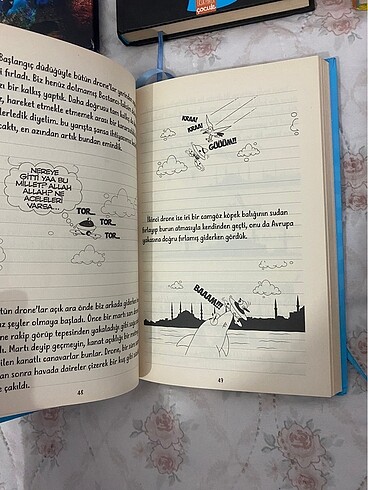 çocuk
Başlangıç düdüğüyle bütün drone'lar
fırladı. Biz henüz dolmamış Bostancı
bir kalkış yaptık. Daha doğrusu tam
hareket etmekle etmemek arası bir
diyelim. bu yarışta şansa ihtiyacımız
en azından artık bundan emindik.
NEREYE
GİTTİ YAA BU
MİLLET? ALLAH
ALLAH? NE
ACELELERİ
VARSA...
TOR...
TOR...
TOR...
drone'lar açık ara önde biz arkada
şeyler olmaya başladı. Önce bir martı
rakip görüp tepesinden yakaladığı gibi
Martı deyip geçmeyin, kanat açıklığı bir
kanatlı canavarlar bunlar. Drone, bir
sonra havada daireler çizerek bir kuş gibi
çakıldı.
48
KRAA!
KRAA!
GÜÜÜM!!
İkinci drone ise iri bir camgöz köpek balığının sudan
fırlayıp burun atmasıyla kendinden geçti, onu da Avrupa
yakasına doğru fırlamış giderken gördük.
BAAAM!!!
49